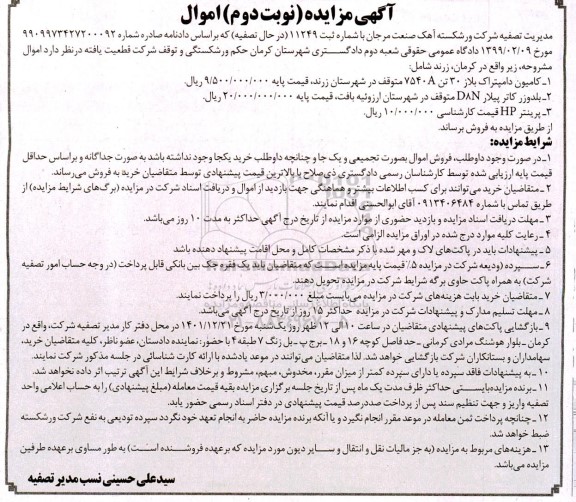 آگهی مزایده (نوبت دوم) اموال
مدیریت تصفیه شرکت ورشکسته آهک صنعت مرجان با شماره ثبت ۱۱۲۴۹ (در حال تصفیه) که براساس دادنامه صادره شماره ۹۹۰۹۹۷۳۴۲۷۲۰۰۰۹۲
مورخ ۱۳۹۹/۰۲/۰۹ دادگاه عمومی حقوقی شعبه دوم دادگستری شهرستان کرمان حکم ورشکستگی و توقف شرکت قطعیت یافته در نظر دارد اموال
مشروحه، زیر واقع در کرمان، زرند شامل:
۱-کامیون دامپتراک بلاز ۳۰ تن ۷۵۴۰A متوقف در شهرستان زرند، قیمت پایه ۹/۵۰۰/۰۰۰/۰۰۰ ریال.
۲-بلدوزر کاتر پیلار D۸N متوقف در شهرستان ارزوئیه بافت، قیمت پایه ۲۰/۰۰۰/۰۰۰/۰۰۰ ریال.
۳-پرینتر HP قیمت کارشناسی ۱۰/۰۰۰/۰۰۰ ریال.
از طریق مزایده به فروش برساند.
شرایط مزایده:
۱-در صورت وجود داوطلب، فروش اموال بصورت تجمیعی و یک جا و چنانچه داوطلب خرید یکجا وجود نداشته باشد به صورت جداگانه و براساس حداقل
قیمت پایه ارزیابی شده توسط کارشناسان رسمی دادگستری ذی‌صلاح با بالاترین قیمت پیشنهادی توسط متقاضیان خرید به فروش می‌رساند.
۲-متقاضیان خرید می‌توانند برای کسب اطلاعات بیشتر و هماهنگی جهت بازدید از اموال و دریافت اسناد شرکت در مزایده (برگ‌های شرایط مزایده) از
طریق تماس با شماره ۰۹۱۳۳۴۰۶۴۸۴ آقای ابوالحسنی اقدام نمایند.
۳-مهلت دریافت اسناد مزایده و بازدید حضوری از موارد مزایده از تاریخ درج آگهی حداکثر به مدت ۱۰ روز می‌باشد.
۴-رعایت کلیه موارد درج شده در اوراق مزایده الزامی است.
۵-پیشنهادات باید در پاکت‌های لاک و مهر شده با ذکر مشخصات کامل و محل اقامت پیشنهاد دهنده باشد
۶-سپرده (ودیعه شرکت در مزایده ۵٪ قیمت پایه مزایده است که متقاضیان باید یک فقره چک بین بانکی قابل پرداخت (در وجه حساب امور تصفیه
شرکت) به همراه پاکت حاوی برگه شرایط شرکت در مزایده تحویل دهند.
۷-متقاضیان خرید بابت هزینه‌های شرکت در مزایده می‌بایست مبلغ ۳/۰۰۰/۰۰۰ ریال را پرداخت نمایند.
۸-مهلت تسلیم مدارک و پیشنهادات شرکت در مزایده حداکثر ۱۵ روز از تاریخ درج آگهی می‌باشد.
۹-بازگشایی پاکت‌های پیشنهادی متقاضیان در ساعت ۱۰ الی ۱۲ ظهر روز یکشنبه مورخ ۱۴۰۱/۱۲/۲۱ در محل دفتر کار مدیر تصفیه شرکت، واقع در
کرمان-بلوار هوشنگ مرادی کرمانی-حد فاصل کوچه ۱۶ و ۱۸-برج پ-بل زنگ ۷ طبقه ۴ با حضور: نماینده دادستان، عضو ناظر، کلیه متقاضیان خرید،
سهامداران و بستانکاران شرکت بازگشایی خواهد شد. لذا متقاضیان می‌توانند در موعد یادشده با ارائه کارت شناسائی در جلسه مذکور شرکت نمایند.
۱۰-به پیشنهادات فاقد سپرده یا دارای سپرده کمتر از میزان مقرر، مخدوش، مبهم، مشروط و برخلاف شرایط این آگهی ترتیب اثر داده نخواهد شد.
۱۱-برنده مزایده بایستی حداکثر ظرف مدت یک ماه پس از تاریخ جلسه برگزاری مزایده بقیه قیمت معامله (مبلغ پیشنهادی) را به حساب اعلامی واحد
تصفیه واریز و جهت تنظیم سند پس از پرداخت صددرصد قیمت پیشنهادی در دفتر اسناد رسمی حضور یابد.
۱۲-چنانچه پرداخت ثمن معامله در موعد مقرر انجام نگیرد و یا آنکه برنده مزایده حاضر به انجام تعهد خود نگردد سپرده تودیعی به نفع شرکت ورشکسته
ضبط خواهد شد.
۱۳-هزینه‌های مربوط به مزایده (به جز مالیات نقل و انتقال و سایر دیون مورد مزایده که برعهده فروشنده است) به طور مساوی برعهده طرفین
مزایده می‌باشد.
سیدعلی حسینی نسب مدیر تصفیه